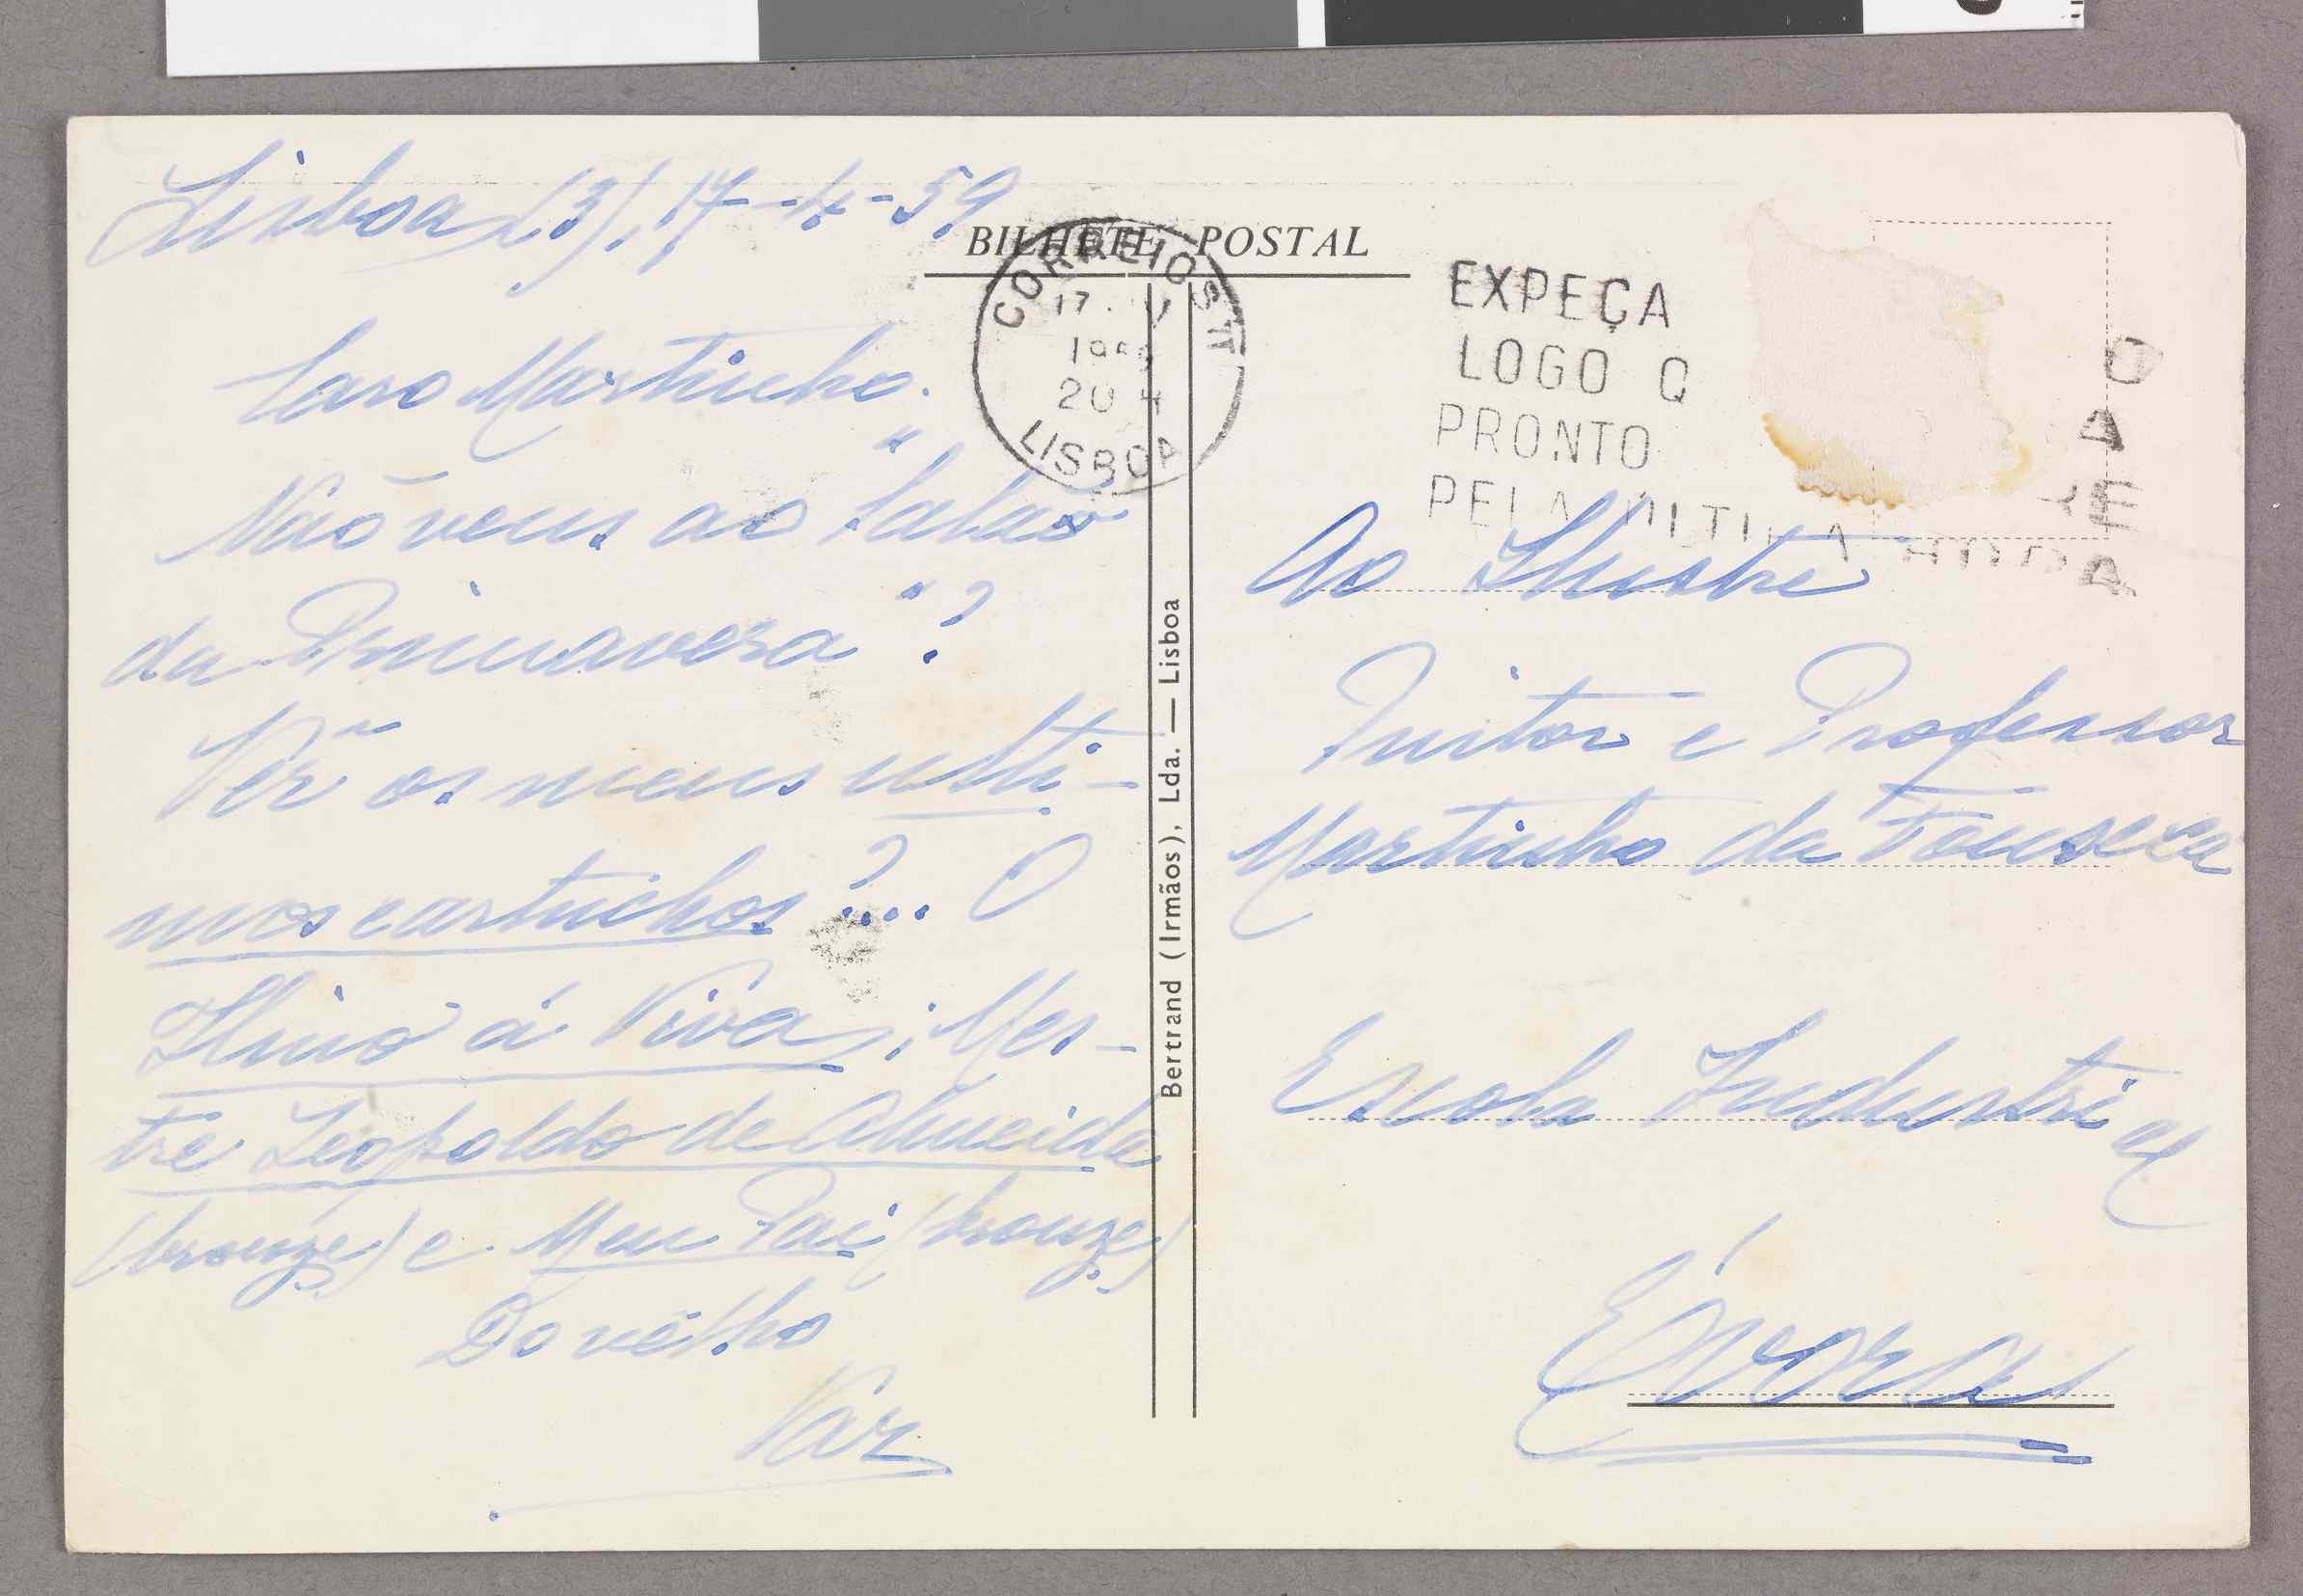 Lisboa, (3), 17-4-59
Caro Martinho.
Não vens ao "Salão
da Primavera"?
Vêr os meus ulti-
mos cartuchos?... O
Hino á Vida; Mes-
tre Leopoldo de Almeida
(bronze) e Meu Pai (bronze)
Do velho
Vaz
BILHETE POSTAL
CORREIOS
17.
LISBOA
EXPEÇA
LOGO
PRONTO
PELA
Bertrand (Irmãos), Lda. — Lisboa
Ao Ilustre
Pintor e Professor
Martinho da Fonseca
Escola Industrial
Évora